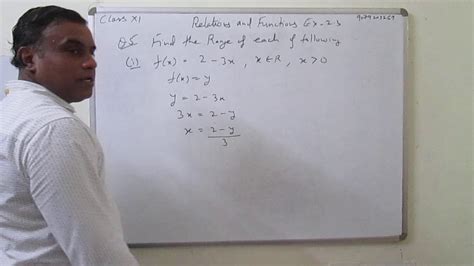 Class XI Relations and Functions Ex-2.3
Q5 Find the Range of each of following
(i) f(x) = 2 - 3x, x ∈ R, x > 0
f(x) = y
y = 2 - 3x
3x = 2 - y
x = 2 - y
3